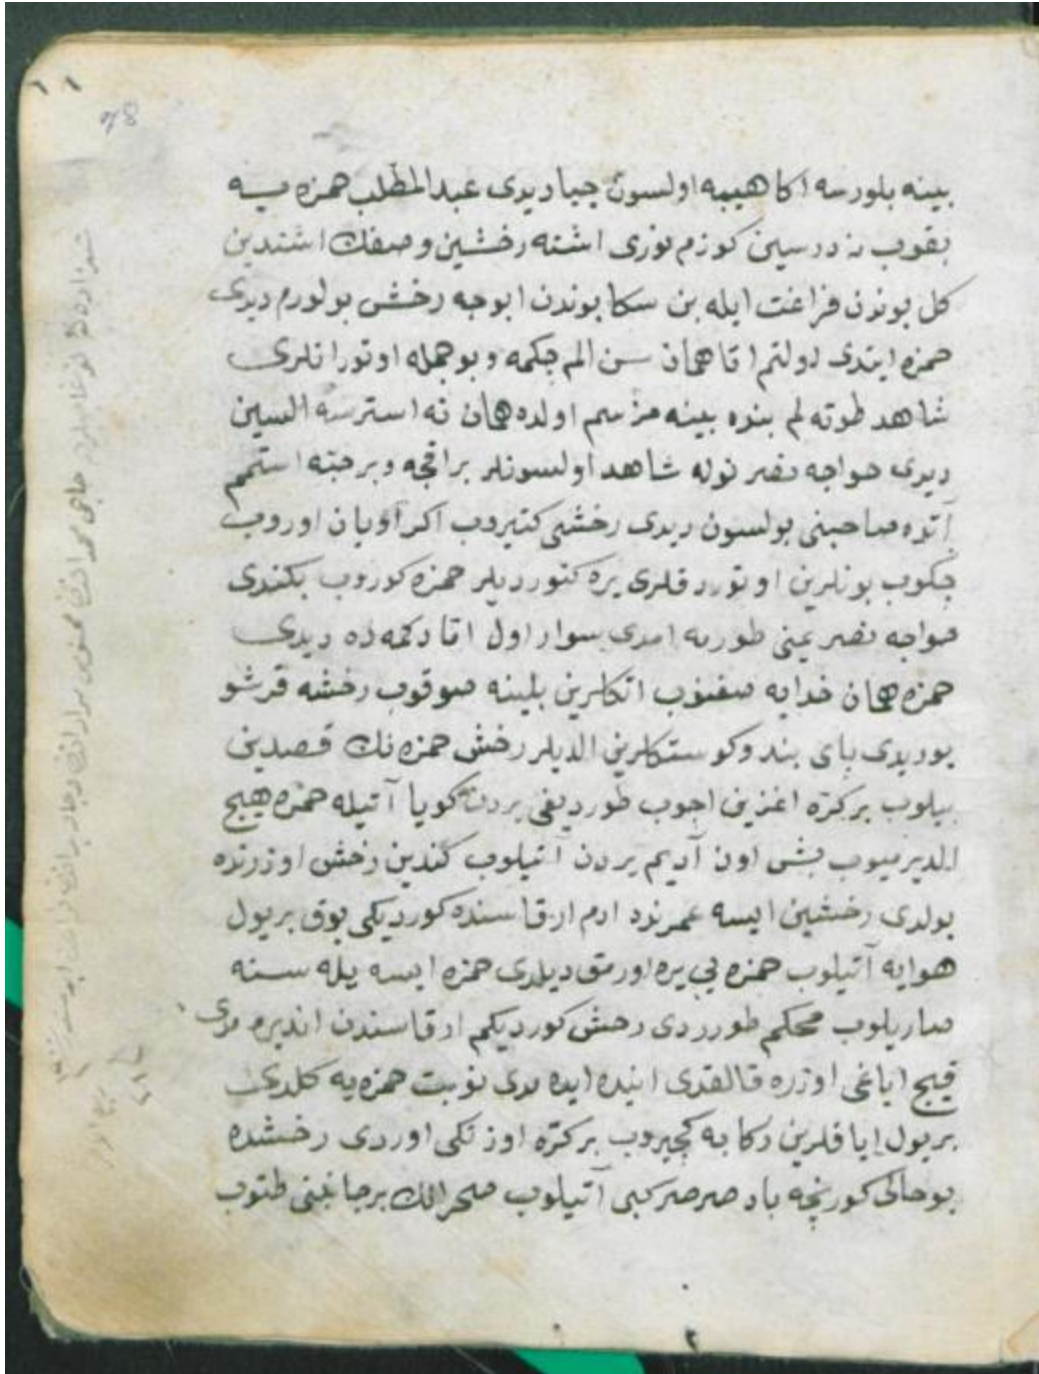 بينه بلورسه اكا هيبه اولسون ديدى عبدالمطلب حمزه يه
بقوب نه درسين كوزم نورى اشته رخشين وصفك اشتدين
كل بوندن فراغت ايله بن سكا بوندن ايوجه رخش بولورم ديدى
حمزه ايتدى دولتم اتا همان سن الم چكمه و بو جمله اوتورانلرى
شاهد طوته لم بنده بينه مزسم اولده همان نه استرسه السين
ديدى خواجه نصر نوله شاهد اولسونلر بر اقچه و بر حبه استمم
آتده صاحبنى بولسون ديدى رخشى كتيروب اكر اويان اوروب
چكوب بونلرين اوتوردقلرى يره كتورديلر حمزه كوروب بكندى
خواجه نصر يمنى طورمه امدى سوار اول اتا دكمه ده ديدى
حمزه همان خدايه صغنوب اتكلرين بلينه صوقوب رخشه قرشو
يوريدى پاى بند و كوستكلرين الديلر رخش حمزه نك قصدين
بيلوب بر كرّه اغزين اچوب طورديغى يردن كويا آتيله حمزه هيچ
الديرميوب بش اون آديم يردن آتيلوب كندين رخش اوزرنده
بولدى رخشين ايسه عمرنده ادم ارقاسنده كورديكى يوق بر يول
هوايه آتيلوب حمزه يى يره اورمق ديلدى حمزه ايسه يله سنه
صاريلوب محكم طوردى رخش كورديكم ارقاسندن انديره مدى
قيچ اياغى اوزره قالقدى انيده ايده مدى نوبت حمزه يه كلدى
بر يول اياقلرين ركابه كچيروب بر كرّه اوزنكى اوردى رخشده
بو حالى كورنجه باد صرصر كبى آتيلوب صحرانك بر جانبنى طتوب